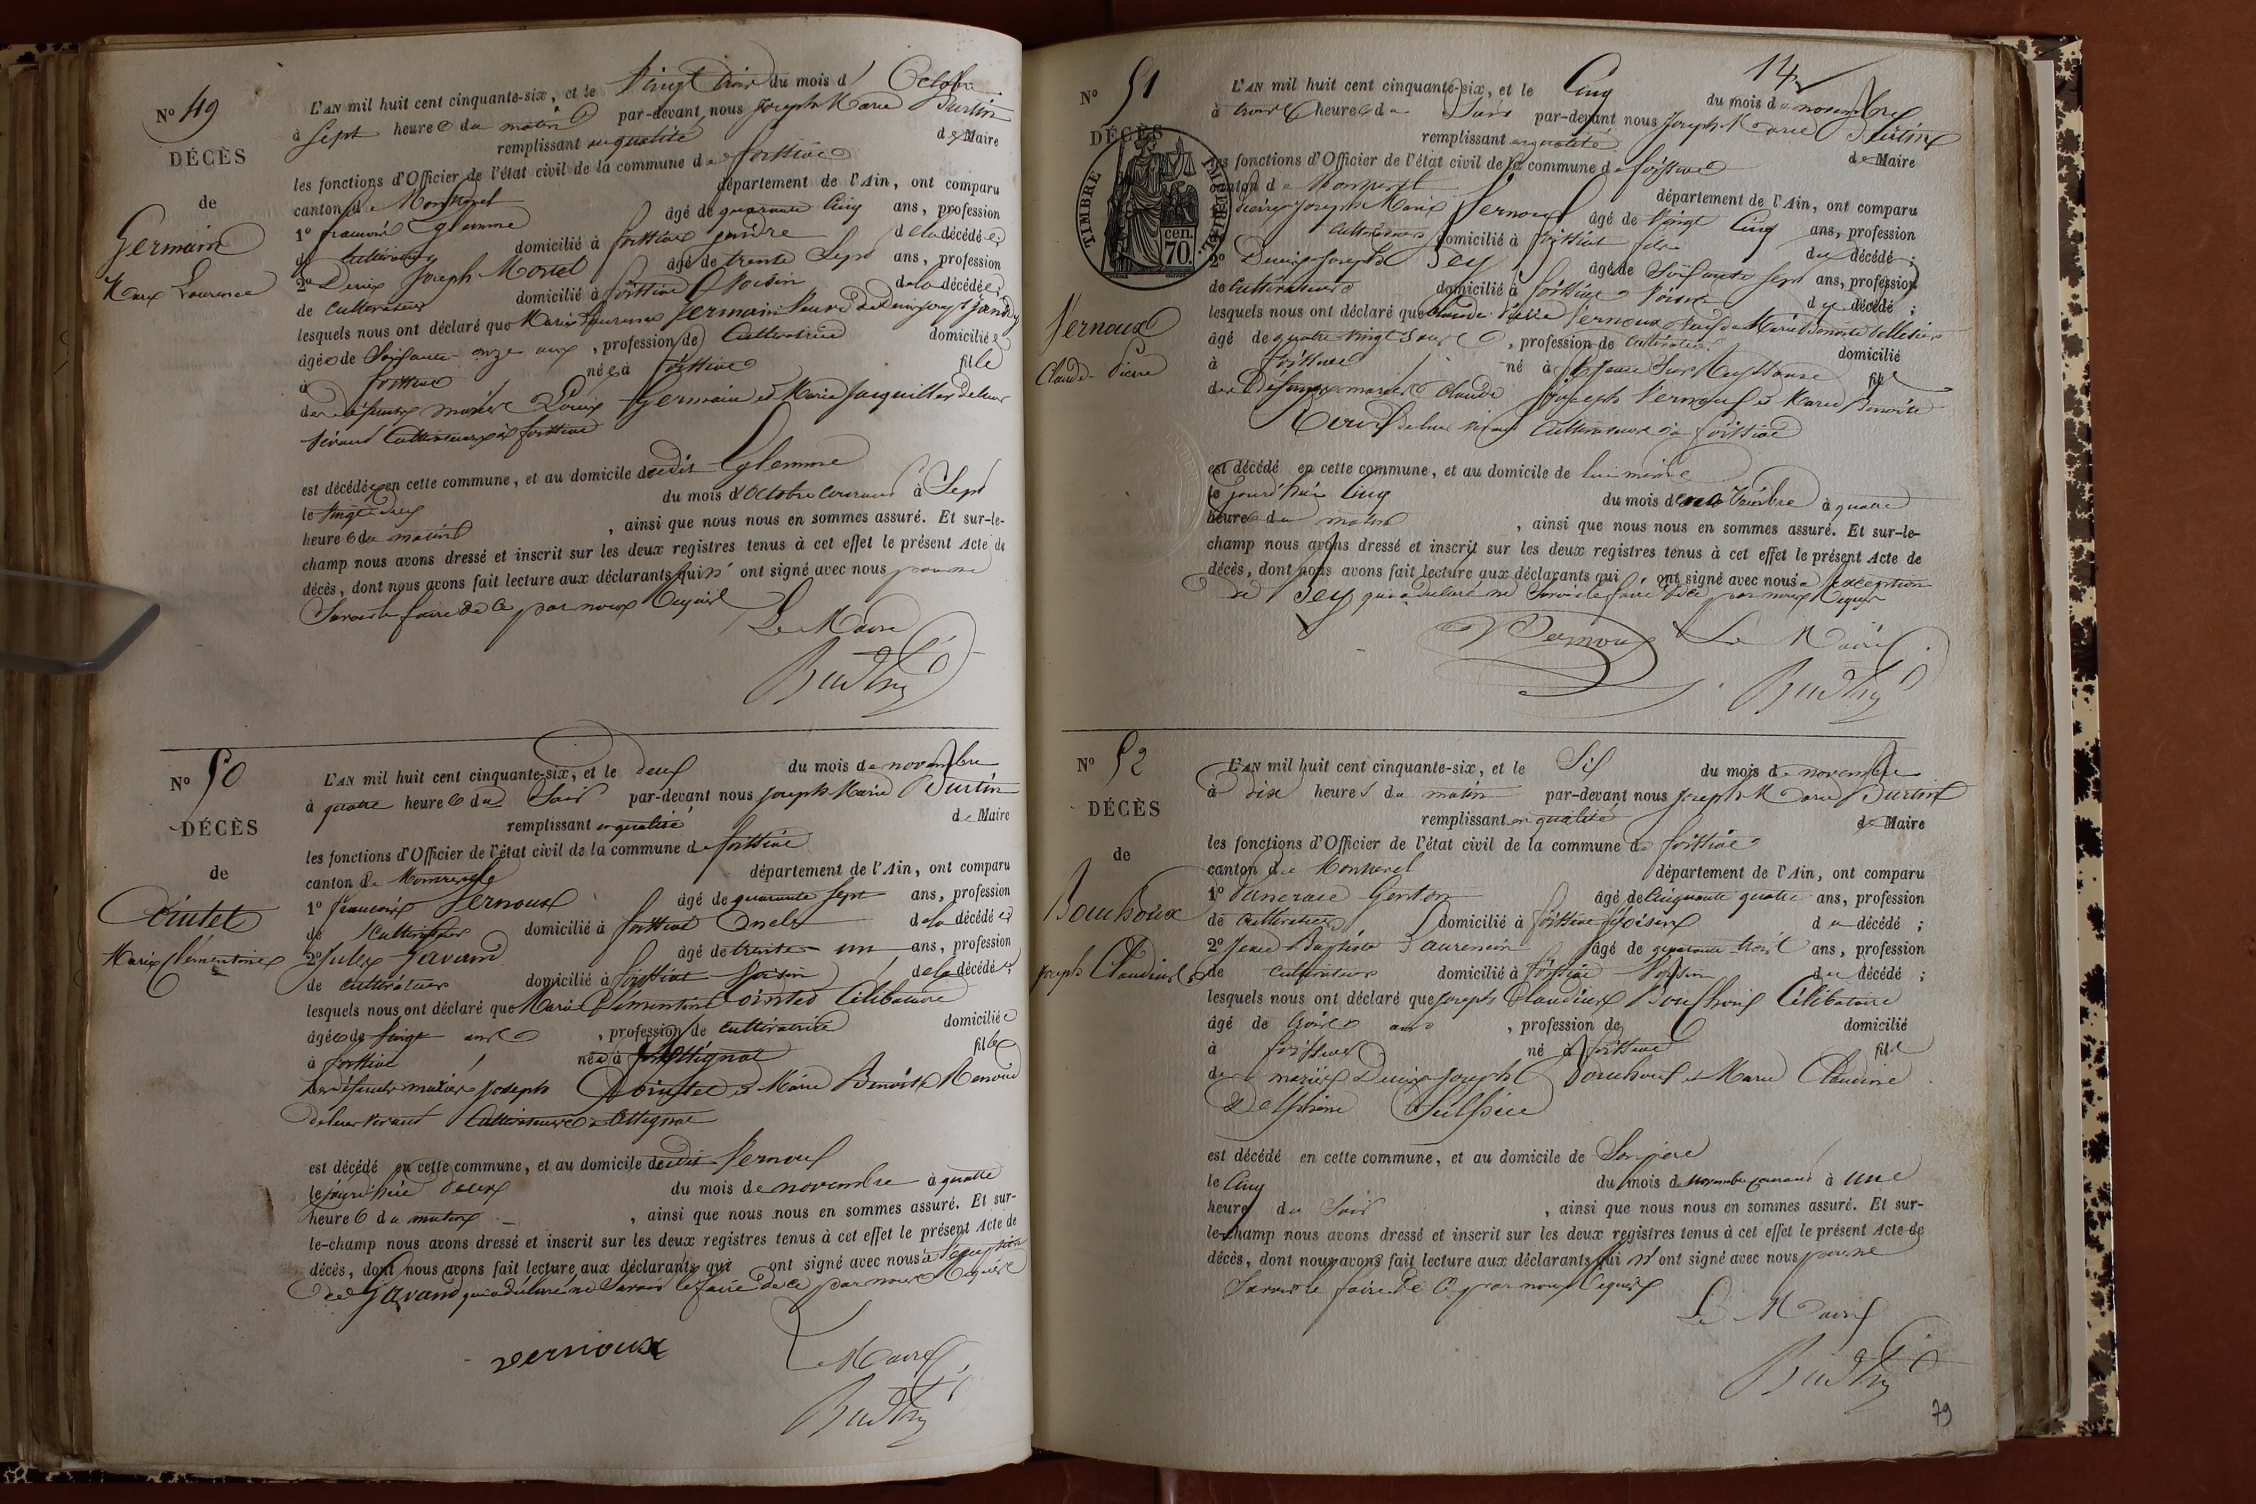 No 49
DÉCÈS
de
Germain
Marie Laurence
L'AN mil huit cent cinquante-six, et le Vingt trois du mois d' Octobre
à Sept heures du matin par-devant nous Joseph Marie Burtin
remplissant en qualité de Maire
les fonctions d'Officier de l'état civil de la commune de foissiat
canton de Montrevel département de l'Ain, ont comparu
1o françois âgé de quarante Cinq ans, profession
de Cultivateur domicilié à foissiat gendre de la décédée;
2o Denis Joseph Morel âgé de trente Sept ans, profession
de Cultivateur domicilié à foissiat Voisin de la décédée;
lesquels nous ont déclaré que Marie Laurence Germain Veuve de Denis Joseph
âgée de Soixante onze ans, profession de Cultivatrice domiciliée
à foissiat née à foissiat fille
des défunts mariés Louis Germain et Marie de leur
vivant Cultivateurs à foissiat
est décédée en cette commune, et au domicile dudit
le Vingt deux du mois d'Octobre Courant à Sept
heures du matin, ainsi que nous nous en sommes assuré. Et sur-le-
champ nous avons dressé et inscrit sur les deux registres tenus à cet effet le présent Acte de
décès, dont nous avons fait lecture aux déclarants qui n'ont signé avec nous pour ne
Savoir le faire de Ce par nous Requis
Le Maire
Burtin
No 50
DÉCÈS
de
Cointet
Marie Clémentine
L'AN mil huit cent cinquante-six, et le deux du mois de novembre
à quatre heures du Soir par-devant nous Joseph Marie Burtin
remplissant en qualité de Maire
les fonctions d'Officier de l'état civil de la commune de foissiat
canton de Montrevel département de l'Ain, ont comparu
1o françois Vernoux âgé de quarante Sept ans, profession
de Cultivateur domicilié à foissiat oncle de la décédée;
2o Jules Gavand âgé de trente un ans, profession
de Cultivateur domicilié à foissiat Voisin de la décédée;
lesquels nous ont déclaré que Marie Clémentine Cointet Célibataire
âgée de Vingt ans, profession de Cultivatrice domiciliée
à foissiat née à Attignat fille
des défunts mariés Joseph Cointet et Marie Benoite Renoud
de leur vivant Cultivateurs à Attignat
est décédé en cette commune, et au domicile dudit Vernoux
le jourd'hui deux du mois de novembre à quatre
heures du matin, ainsi que nous nous en sommes assuré. Et sur-
le-champ nous avons dressé et inscrit sur les deux registres tenus à cet effet le présent Acte de
décès, dont nous avons fait lecture aux déclarants qui ont signé avec nous à l'exception
de Gavand qui a déclaré ne Savoir le faire de Ce par nous Requis
vernoux
Le Maire
Burtin
14
No 51
DÉCÈS
TIMBRE IMPÉRIAL
70 cen.
Vernoux
Claude Pierre
L'AN mil huit cent cinquante-six, et le Cinq du mois de novembre
à trois heures du Soir par-devant nous Joseph Marie Burtin
remplissant en qualité de Maire
les fonctions d'Officier de l'état civil de la commune de foissiat
canton de Montrevel département de l'Ain, ont comparu
Pierre Joseph Marie Vernoux âgé de Vingt Cinq ans, profession
Cultivateur domicilié à foissiat fils du décédé;
2o Denis Joseph Pey âgé de Soixante Sept ans, profession
de Cultivateur domicilié à foissiat Voisin du décédé;
lesquels nous ont déclaré que Claude Pierre Vernoux Veuf de Marie Benoite Pelletier
âgé de quatre Vingt, profession de Cultivateur domicilié
à foissiat né à St Jean Sur Reyssouze fils
des défunts mariés Claude Joseph Vernoux et Marie Benoite
de leur vivant Cultivateurs à foissiat
est décédé en cette commune, et au domicile de lui même
le jourd'hui Cinq du mois de novembre à quatre
heures du matin, ainsi que nous nous en sommes assuré. Et sur-le-
champ nous avons dressé et inscrit sur les deux registres tenus à cet effet le présent Acte de
décès, dont nous avons fait lecture aux déclarants qui ont signé avec nous à l'exception
de Pey qui a déclaré ne Savoir le faire de Ce par nous Requis
Vernoux Le Maire
Burtin
No 52
DÉCÈS
de
Bouchoux
Joseph Claudius
L'AN mil huit cent cinquante-six, et le Six du mois de novembre
à dix heures du matin par-devant nous Joseph Marie Burtin
remplissant en qualité de Maire
les fonctions d'Officier de l'état civil de la commune de foissiat
canton de Montrevel département de l'Ain, ont comparu
1o Pancrace Genton âgé de Cinquante quatre ans, profession
de Cultivateur domicilié à foissiat Voisin du décédé;
2o Jean Baptiste Paurencin âgé de quarante trois ans, profession
de Cultivateur domicilié à foissiat Voisin du décédé;
lesquels nous ont déclaré que Joseph Claudius Bouchoux Célibataire
âgé de trois ans, profession de domicilié
à foissiat né à foissiat fils
des mariés Denis Joseph Bouchoux et Marie Claudine
Delphine Sulpice
est décédé en cette commune, et au domicile de Son père
le Cinq du mois de novembre Courant à une
heure du Soir, ainsi que nous nous en sommes assuré. Et sur-
le-champ nous avons dressé et inscrit sur les deux registres tenus à cet effet le présent Acte de
décès, dont nous avons fait lecture aux déclarants qui n'ont signé avec nous pour ne
Savoir le faire de Ce par nous Requis
Le Maire
Burtin
79